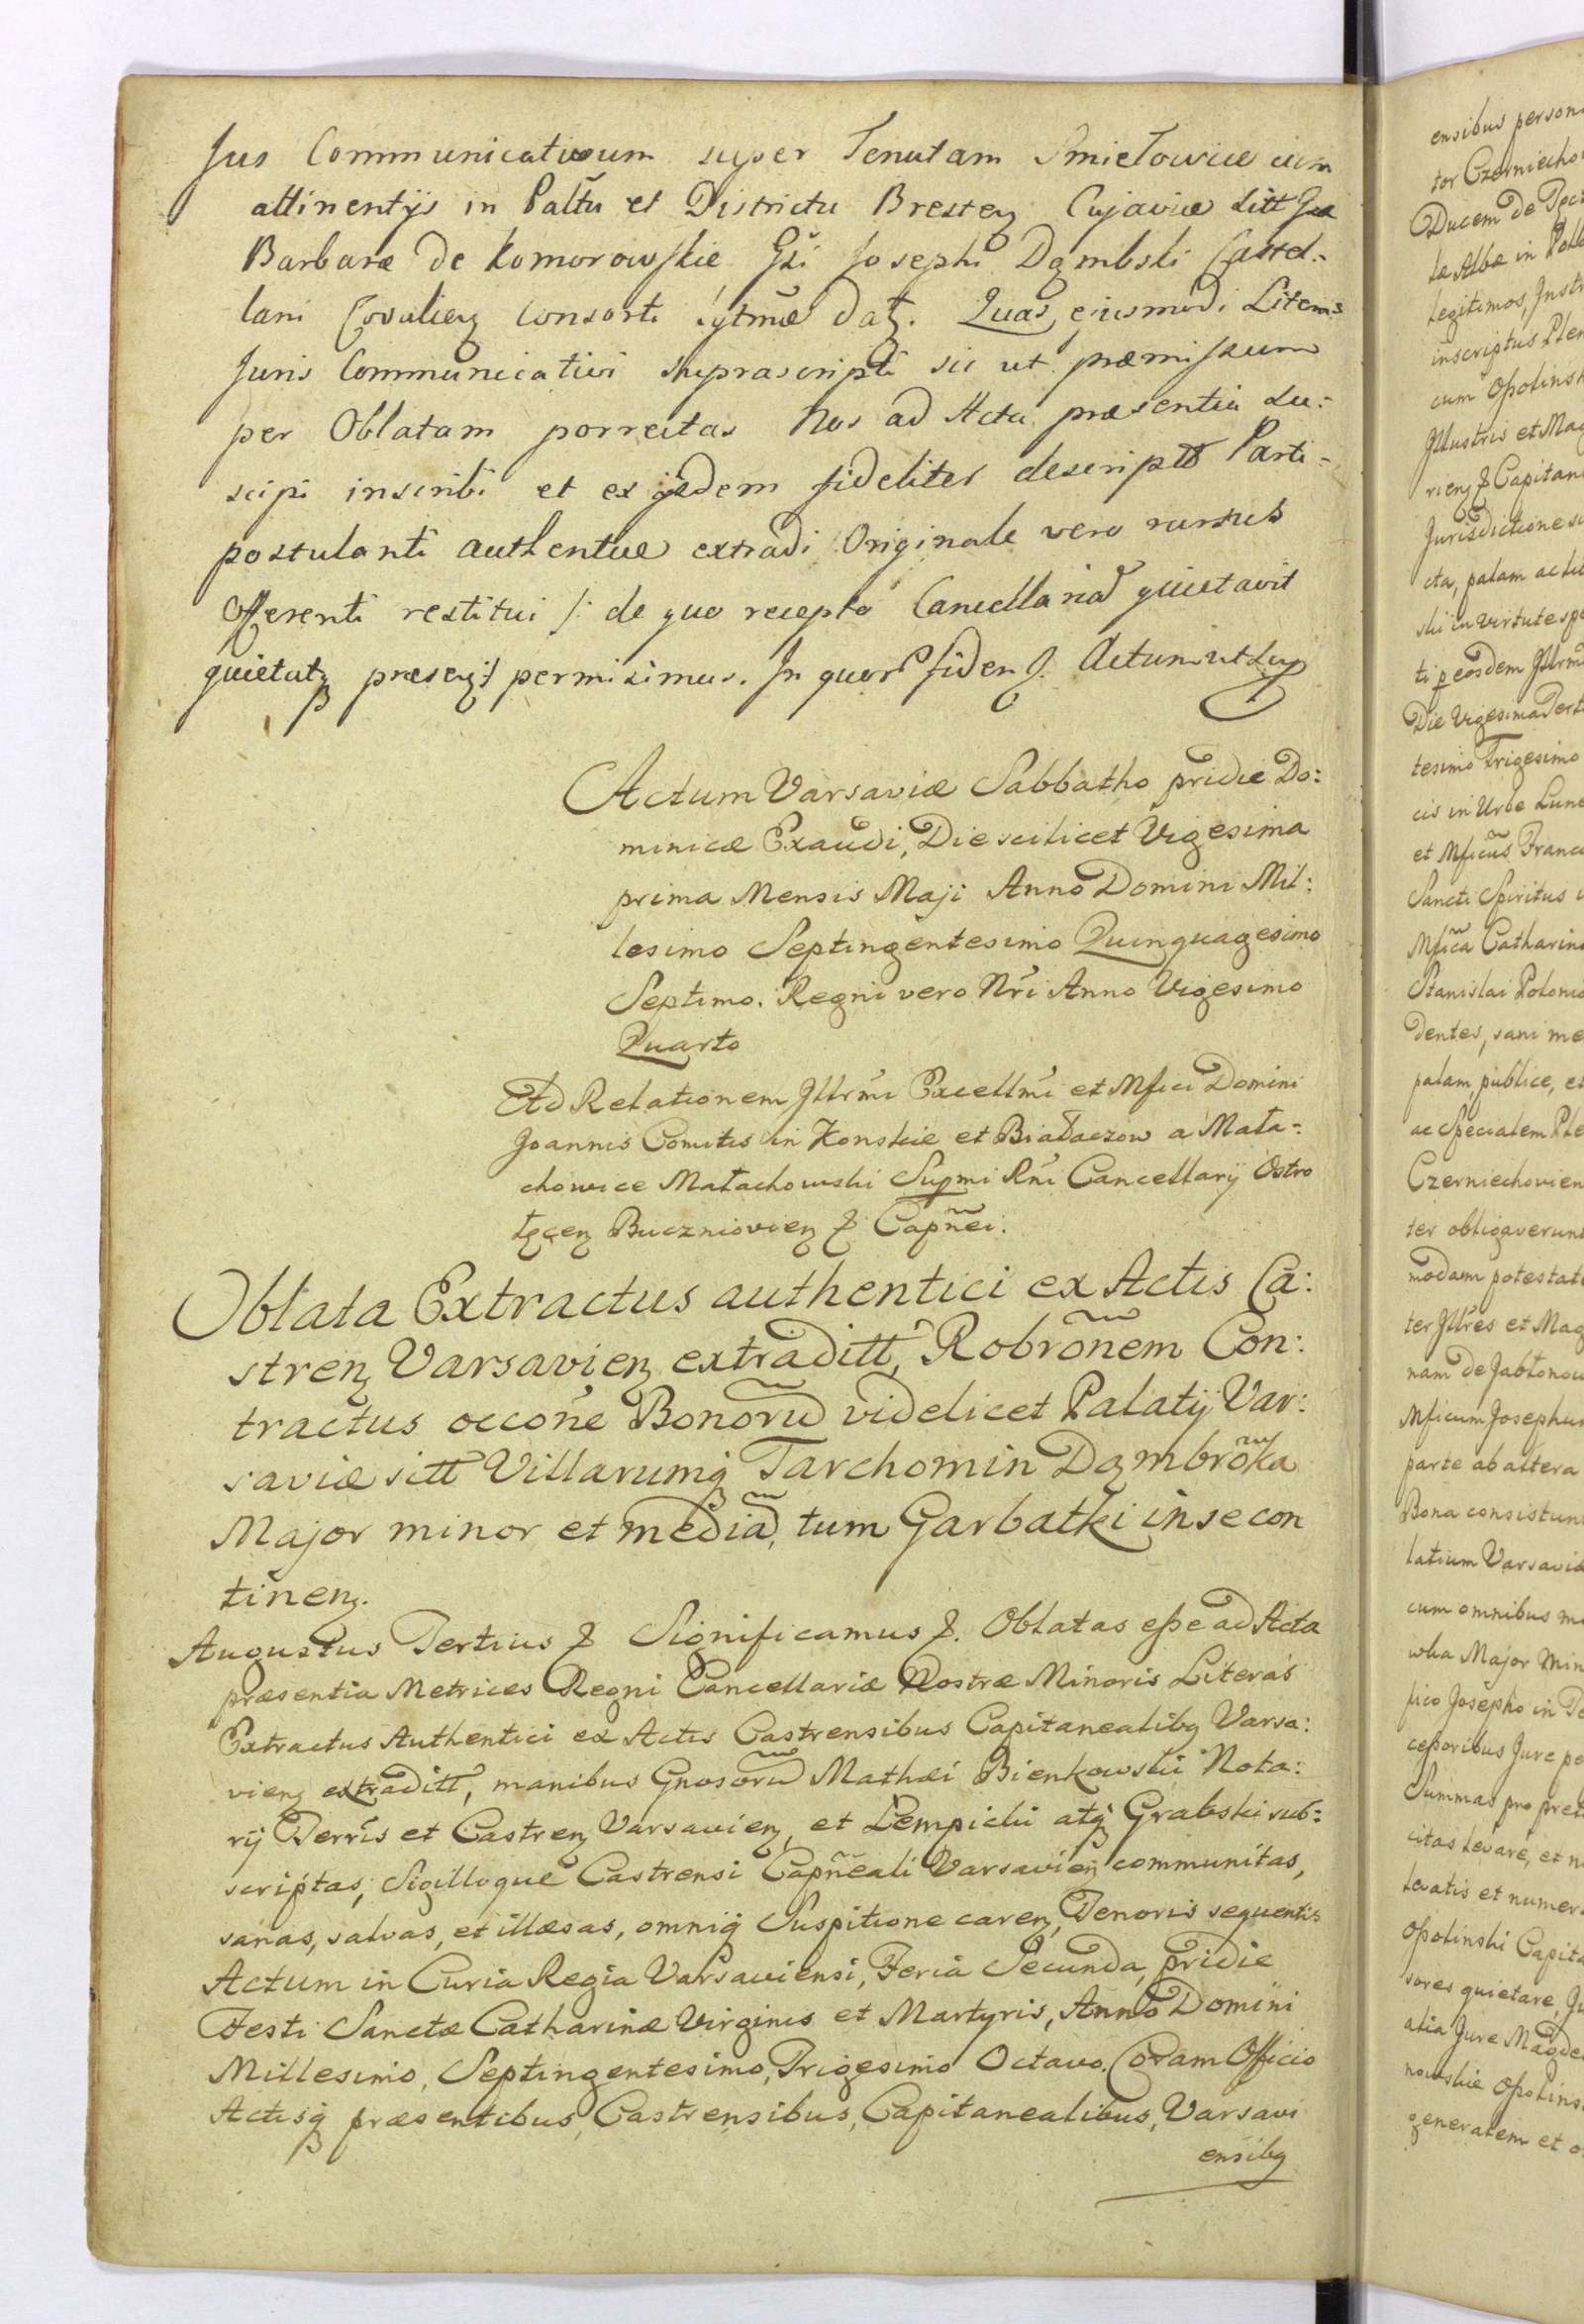 Jus Communicativum super Tenutam Smiełowice cum
attinentijs in Paltu et Districtu Bresteń Cujaviæ sitt Gsæ
Barbaræ de Komorowskie Gsi Josephi Dąmbski Castel-
lani Covalień consorti lytmæ datą. Quas ejusmodi Literas
Juris Communicativi suprascripti sic ut præmissum
per Oblatam porrectas Nos ad Acta præsentia su-
scipi inscribi et ex ijsdem fideliter descriptas Parti-
postulanti authentice extradi Originale vero rursus
Offerenti restitui /: de quo recepto Cancellariad quietavit
quietatq præseń:/ permisimus. In quor fidem &. Actum ut sup
Actum Varsaviæ Sabbatho pridie Do:
minicæ Exaudi, Die scilicet Vigesima
prima Mensis Maji Anno Domini Mil:
lesimo Septingentesimo Quinquagesimo
Septimo. Regni vero Nri Anno Vigesimo
Quarto
Ad Relationem Jllrmi Excellmi et Mfici Domini
Joannis Comitis in Konskie et Białaczow a Mała-
chowice Małachowski Supmi Rni Cancellarij Ostro
łęceń Buczniovień & Capnei.
Oblata Extractus authentici ex Actis Ca:
streń Varsavień extraditt, Robronem Con:
tractus occone Bonoru videlicet Palatij Var:
saviæ sitt Villarumq Tarchomin Dąmbroka
Major minor et media, tum Garbatki in se con
tineń.
Augustus Tertius & Significamus &. Oblatas esse ad Acta
præsentia Metrices Regni Cancellariæ Nostræ Minoris Literas
Extractus Authentici ex Actis Castrensibus Capitanealibq Varsa:
vień extraditt, manibus Gnosoru Mathæi Bienkowski Nota:
rij Terris et Castreń Varsavień, et Lempicki atq Grabski sub:
scriptas, Sigilloque Castrensi Capneali Varsavień communitas,
sanas, salvas, et illæsas, omniq Suspitione careń, Tenoris sequentis
Actum in Curia Regia Varsaviensi, Feria Secunda, pridie
Festi Sanctæ Catharinæ Virginis et Martyris, Anno Domini
Millesimo, Septingentesimo, Trigesimo Octavo. Coram Officio
Actisq præsentibus, Castrensibus, Capitanealibus, Varsavi
ensibq
ensibus person
tor Czerniecho
Ducem de
la Alba in Pala
legitimos, Justr
inscriptus Plen
cum Opolinsk
Jllustris et Mag
rień & Capitan
Jurisdictione
cta, palam ac
ski in virtute spe
ti p eosdem Jllrm
Die Vigesima Tert
tesimo Trigesimo
cis in Urbe Lune
et Mficus Franc
Sancti Spiritus
Mfica Catharin
Stanislai Polon
dentes, sani me
palam, publice, et
ac Specialem Ple
Czerniechovien
ter obligaverunt
modam potestat
ter Jllres et Mag
nam de Jabłonow
Mficum Josephum
parte ab altera
Bona consistun
latium Varsavi
cum omnibus
wka Major Min
fico Josepho in
cessoribus Jure pe
Summas pro preti
citas levare, et n
levatis et numer
Opolinski Capita
sores quietare, Ju
alia Jure Magde
nowskie Opolins
generalem et o